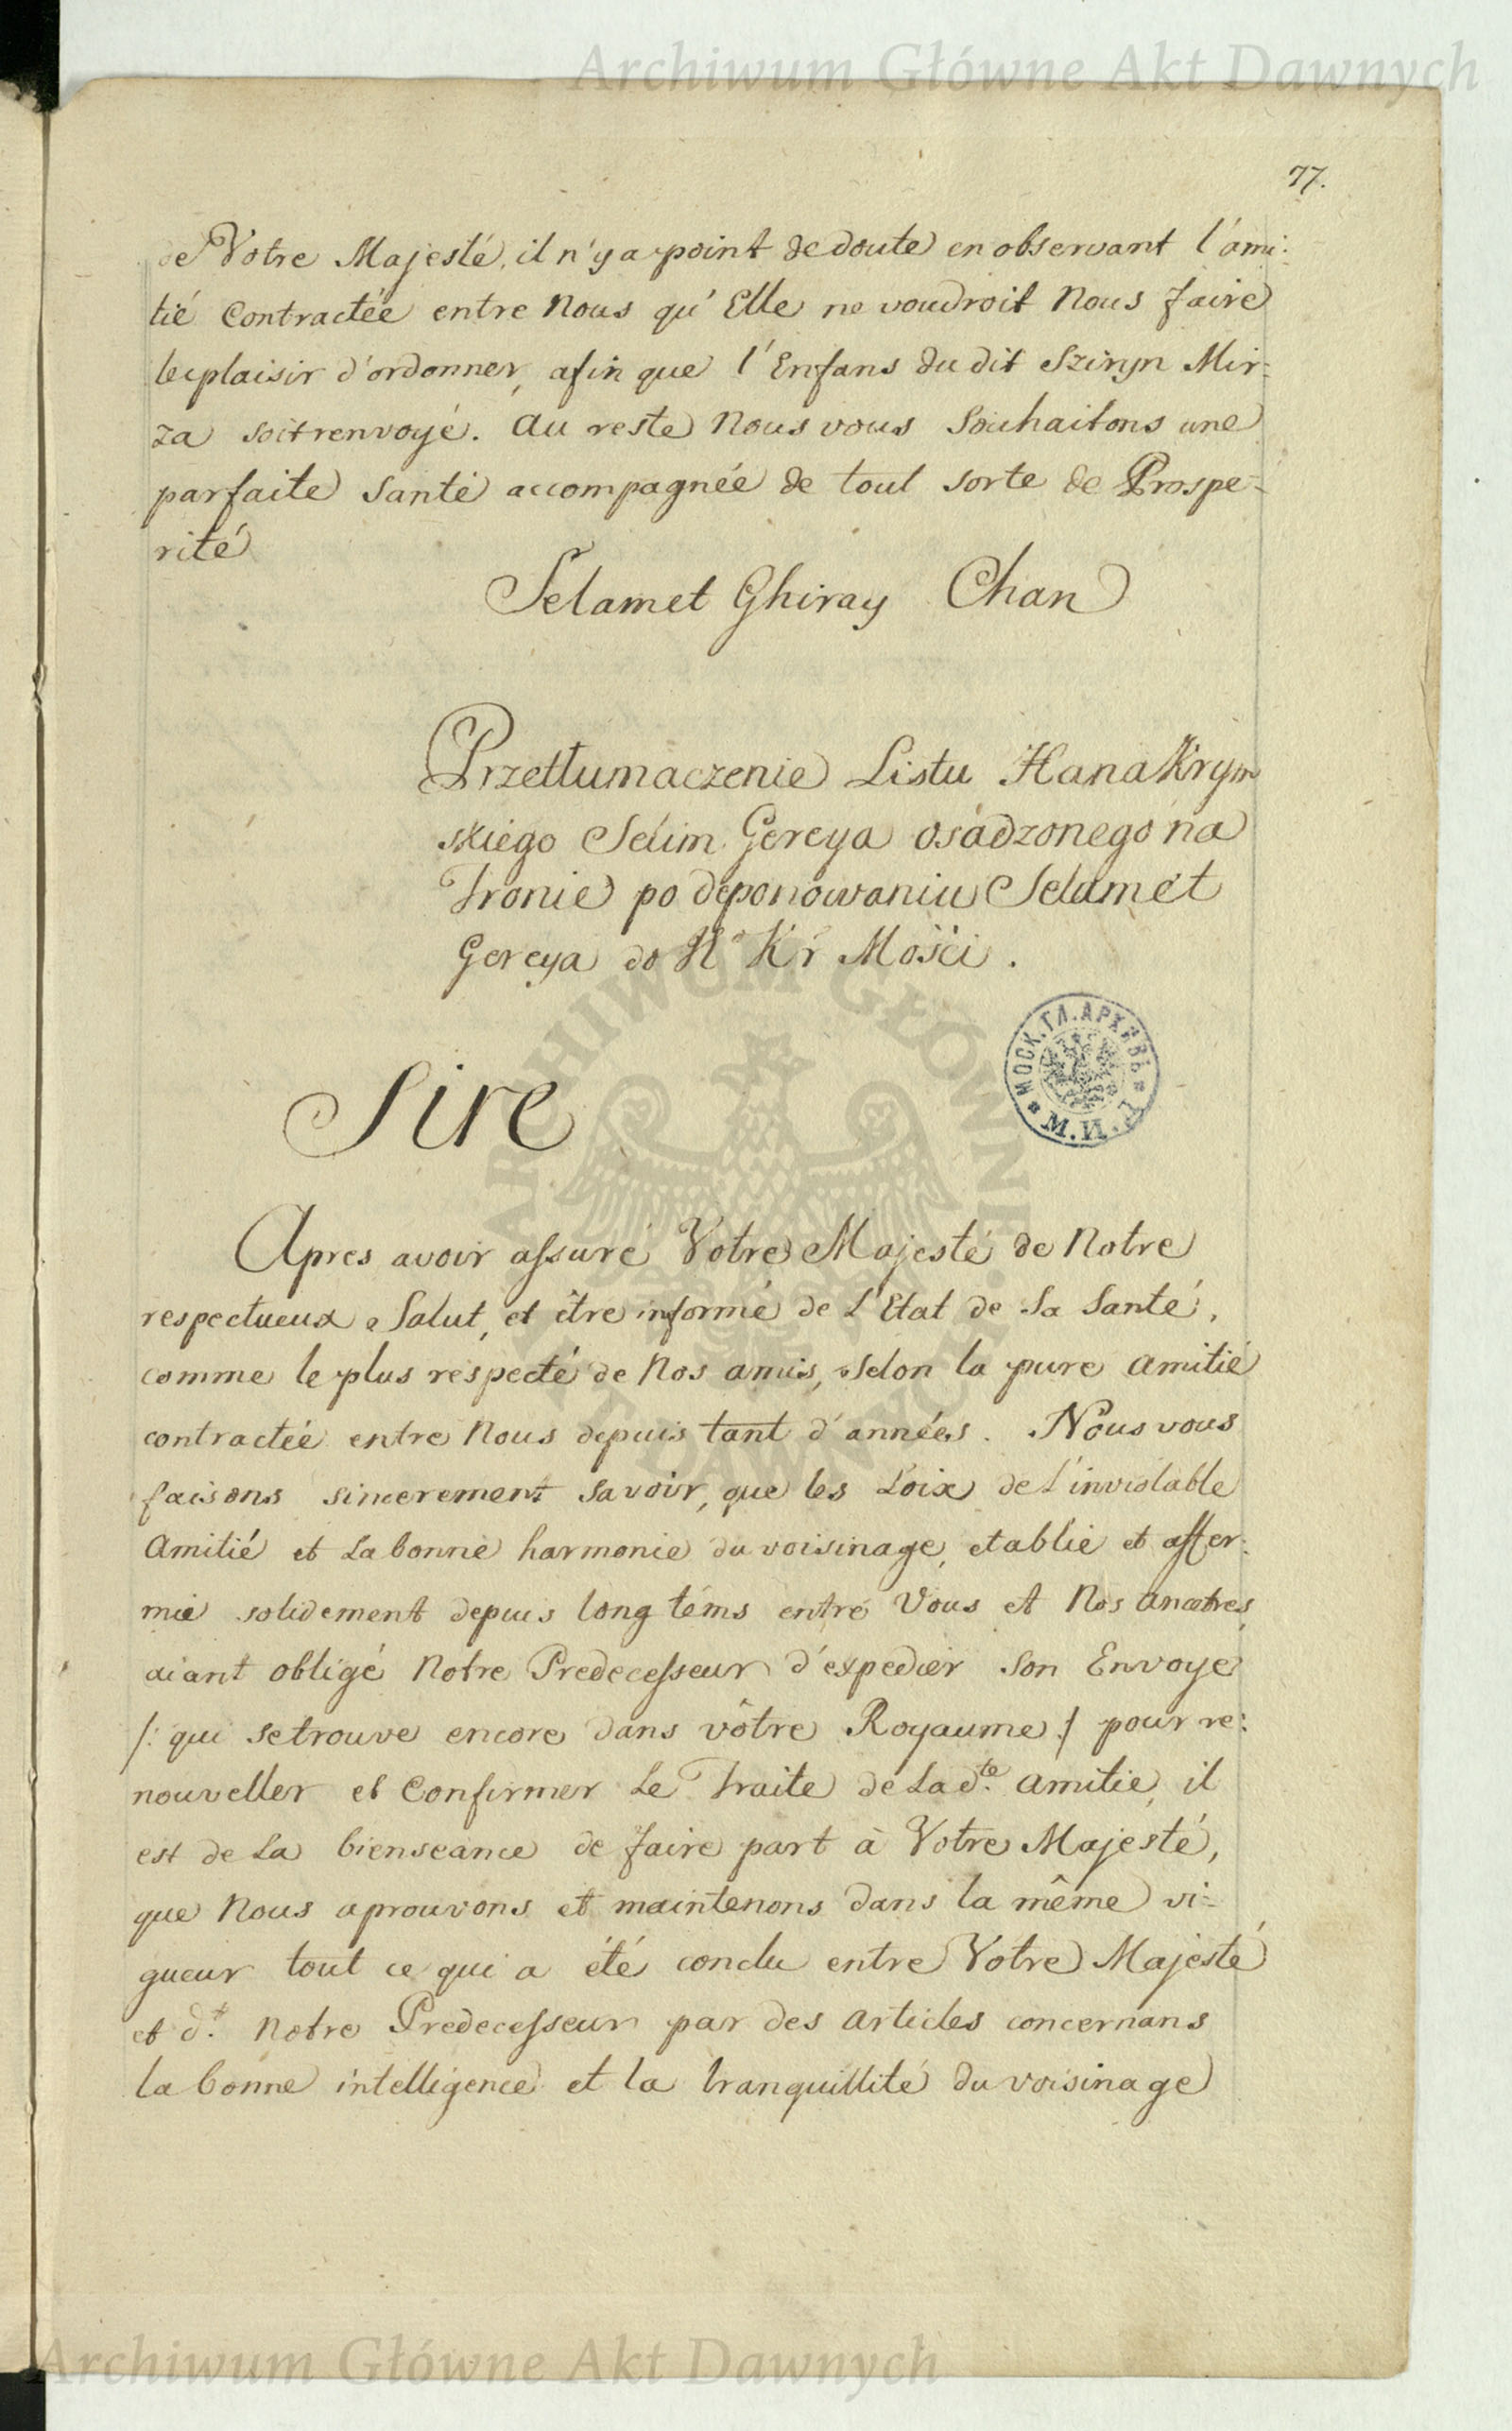 Archiwum Główne Akt Dawnych
77.
de Votre Majesté, il n'y a point de doute en observant l'ami:
tié Contractée entre Nous qu'Elle ne voudroit Nous faire
le plaisir d'ordonner, afin que l'Enfans du dit Sziryn Mir:
za soit renvoyé. Au reste Nous vous Souhaitons une
parfaite Santé accompagnée de tout sorte de Prospe-
rité
Selamet Ghiray Chan
Przetłumaczenie Listu Hana Krym
skiego Selim Gereya osadzonego na
Tronie po deponowaniu Selamet
Gereya do Kr Mości.
МОСК. ГЛ. АРХИВЪ М. И. Д.
Sire
Apres avoir assuré Votre Majesté de Notre
respectueux Salut, et être informé de L'Etat de Sa Santé,
comme le plus respecté de Nos amis, selon la pure amitié
contractée entre Nous depuis tant d'années. Nous vous
faisons sincerement savoir, que les Loix de L'inviolable
Amitié et La bonne harmonie du voisinage, etablie et affer:
mie solidement depuis long téms entre Vous et Nos Ancetres,
aiant obligé Notre Predecesseur d'expedier Son Envoye
/: qui se trouve encore dans vôtre Royaume :/ pour re:
nouveller et Confirmer Le Traite de La dte. amitie, il
est de La bienseance de faire part à Votre Majesté,
que Nous aprouvons et maintenons dans la même vi-
gueur tout ce qui a été conclu entre Votre Majesté
et dt. Notre Predecesseur par des articles concernans
la bonne intelligence et la tranquillité du voisinage
ARCHIWUM GŁÓWNE AKT DAWNYCH
Archiwum Główne Akt Dawnych